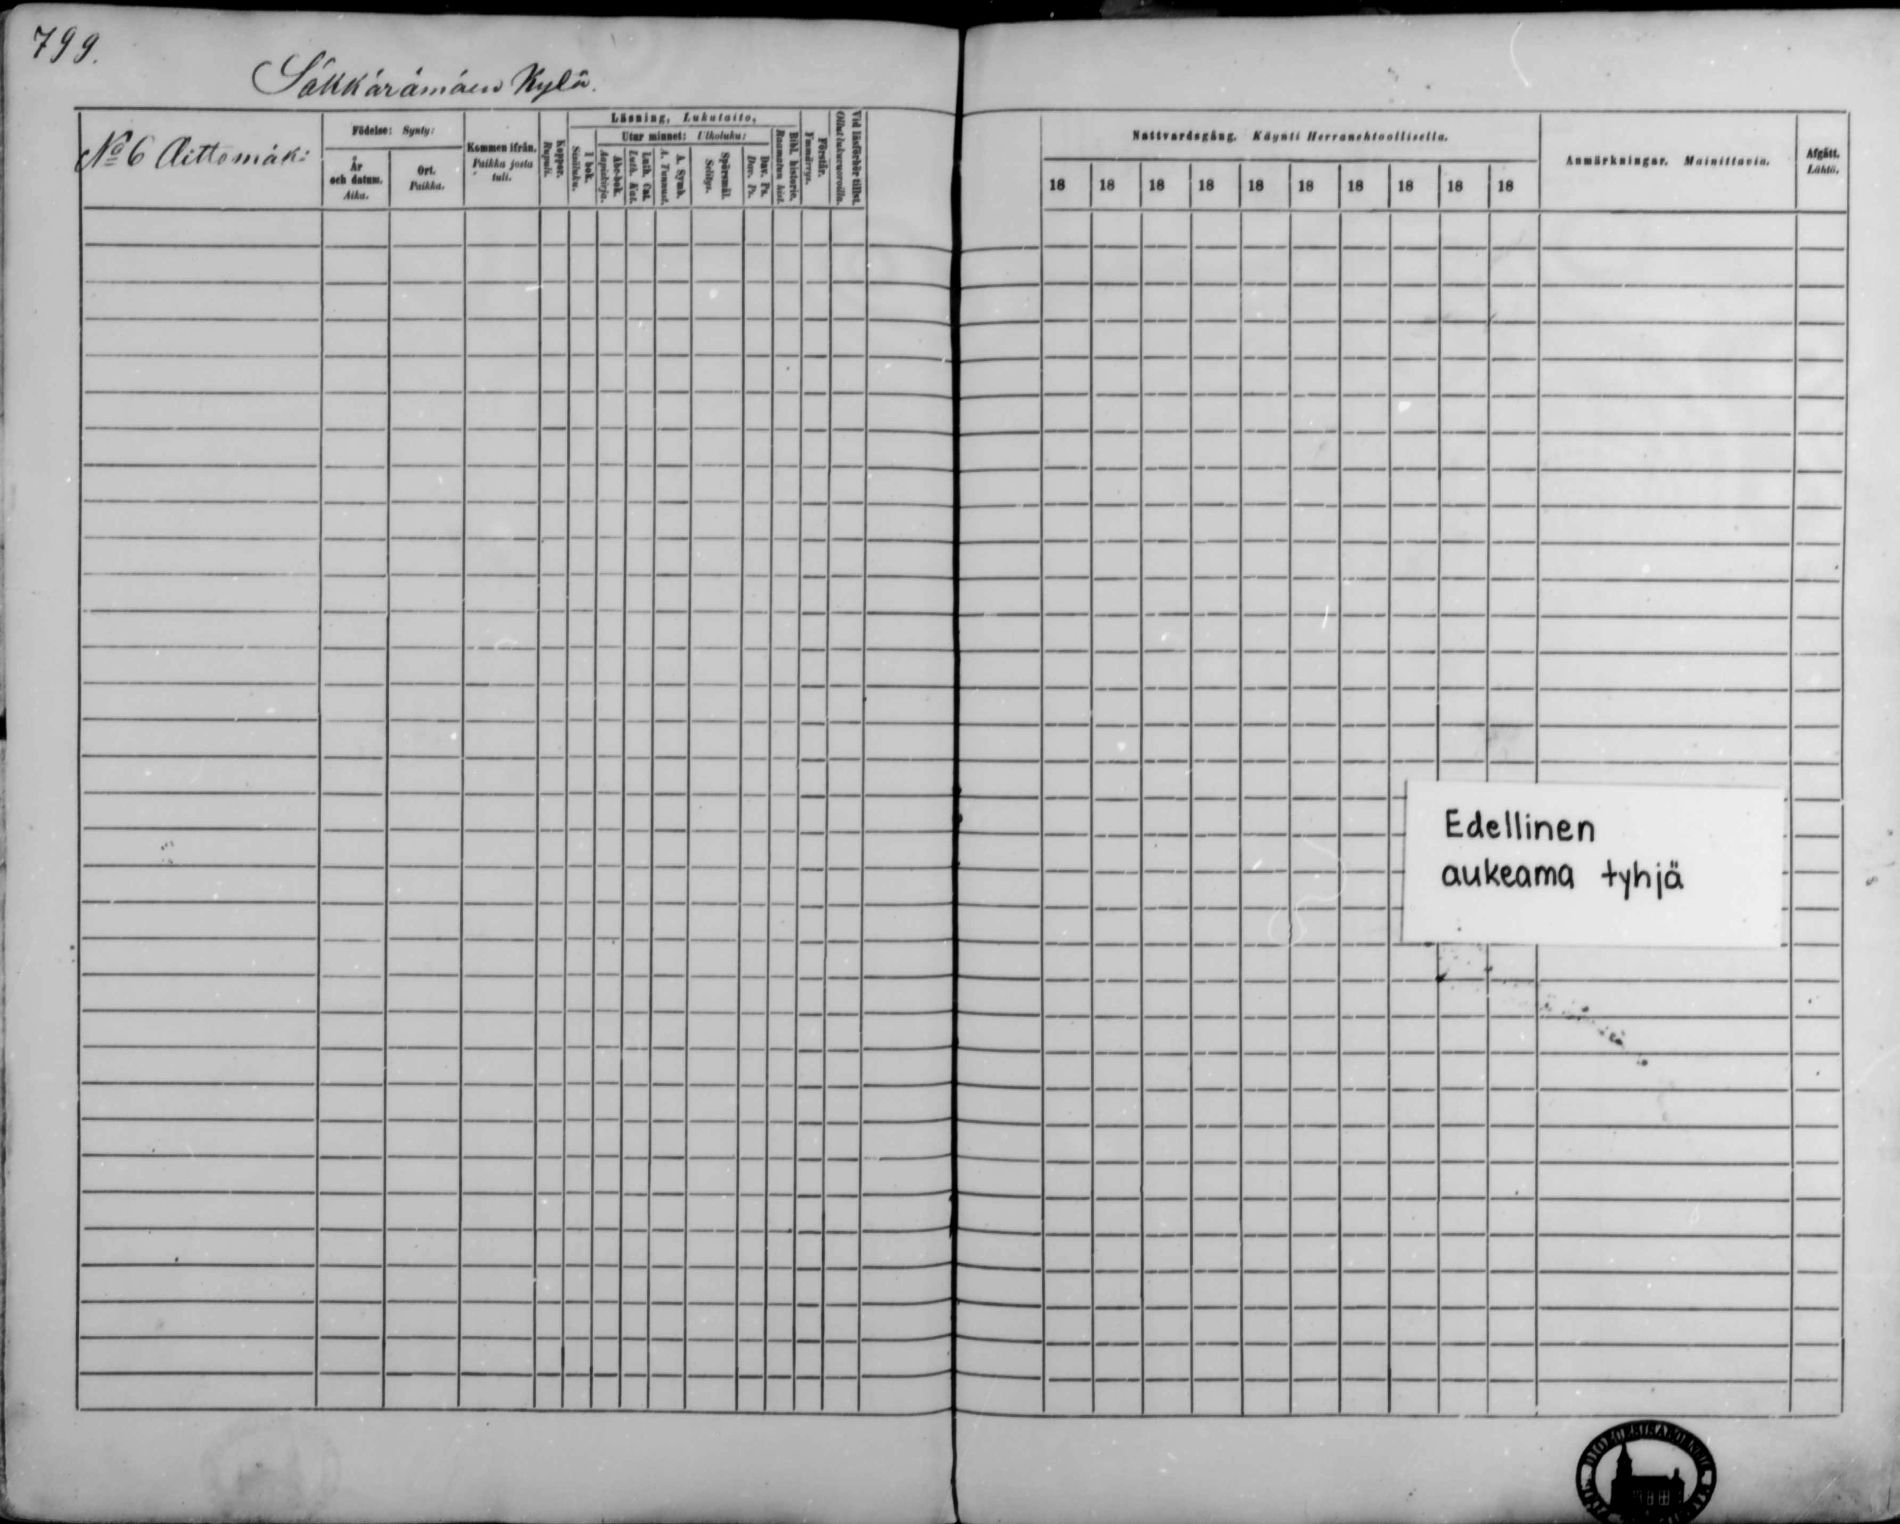 799.
Säkkärämäen Kylä.
No 6 Aittomäki
Födelse: Synty:
År och datum. Aika.
Ort. Paikka.
Kommen ifrån. Paikka josta tuli.
Koppor. Rupuli.
Läsning, Lukutaito,
I bok. Sisäluku.
Utur minnet: Ulkoluku:
Abc-bok. Aapiskirja.
Luth. Cat. Luth. Kat.
A. Symb. A. Tunnust.
Spörsmål. Selitys.
Dav. Ps. Dav. Ps.
Bibl. historie. Raamatun hist.
Förstår. Ymmärrys.
Vid läsförhör tillst. Ollut lukuvuoroilla.
Nattvardsgång. Käynti Herranehtoollisella.
18 18 18 18 18 18 18 18 18 18
Anmärkningar. Mainittavia.
Afgått. Lähtö.
Edellinen
aukeama tyhjä